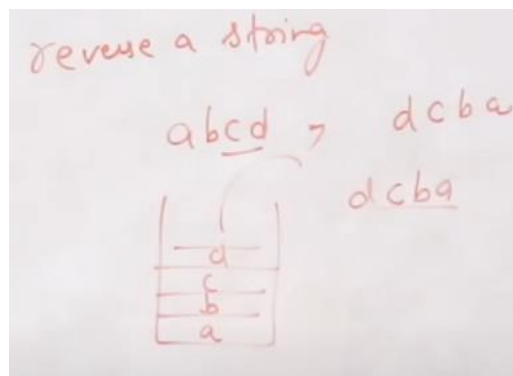 reverse a string
abcd → dcba
dcba
d
c
b
a